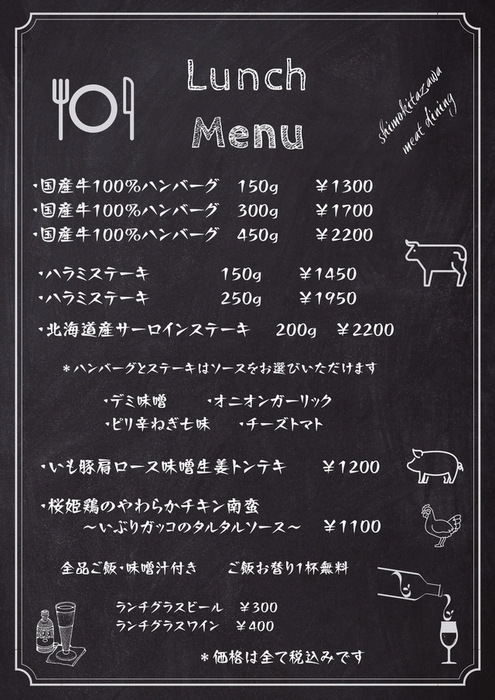 Lunch
Menu
shimokitazawa
meat dining
・国産牛100%ハンバーグ 150g ￥1300
・国産牛100%ハンバーグ 300g ￥1700
・国産牛100%ハンバーグ 450g ￥2200
・ハラミステーキ 150g ￥1450
・ハラミステーキ 250g ￥1950
・北海道産サーロインステーキ 200g ￥2200
＊ハンバーグとステーキはソースをお選びいただけます
・デミ味噌 ・オニオンガーリック
・ピリ辛ねぎ七味 ・チーズトマト
・いも豚肩ロース味噌生姜トンテキ ￥1200
・桜姫鶏のやわらかチキン南蛮
～いぶりガッコのタルタルソース～ ￥1100
全品ご飯・味噌汁付き ご飯お替り1杯無料
ランチグラスビール ￥300
ランチグラスワイン ￥400
＊価格は全て税込みです